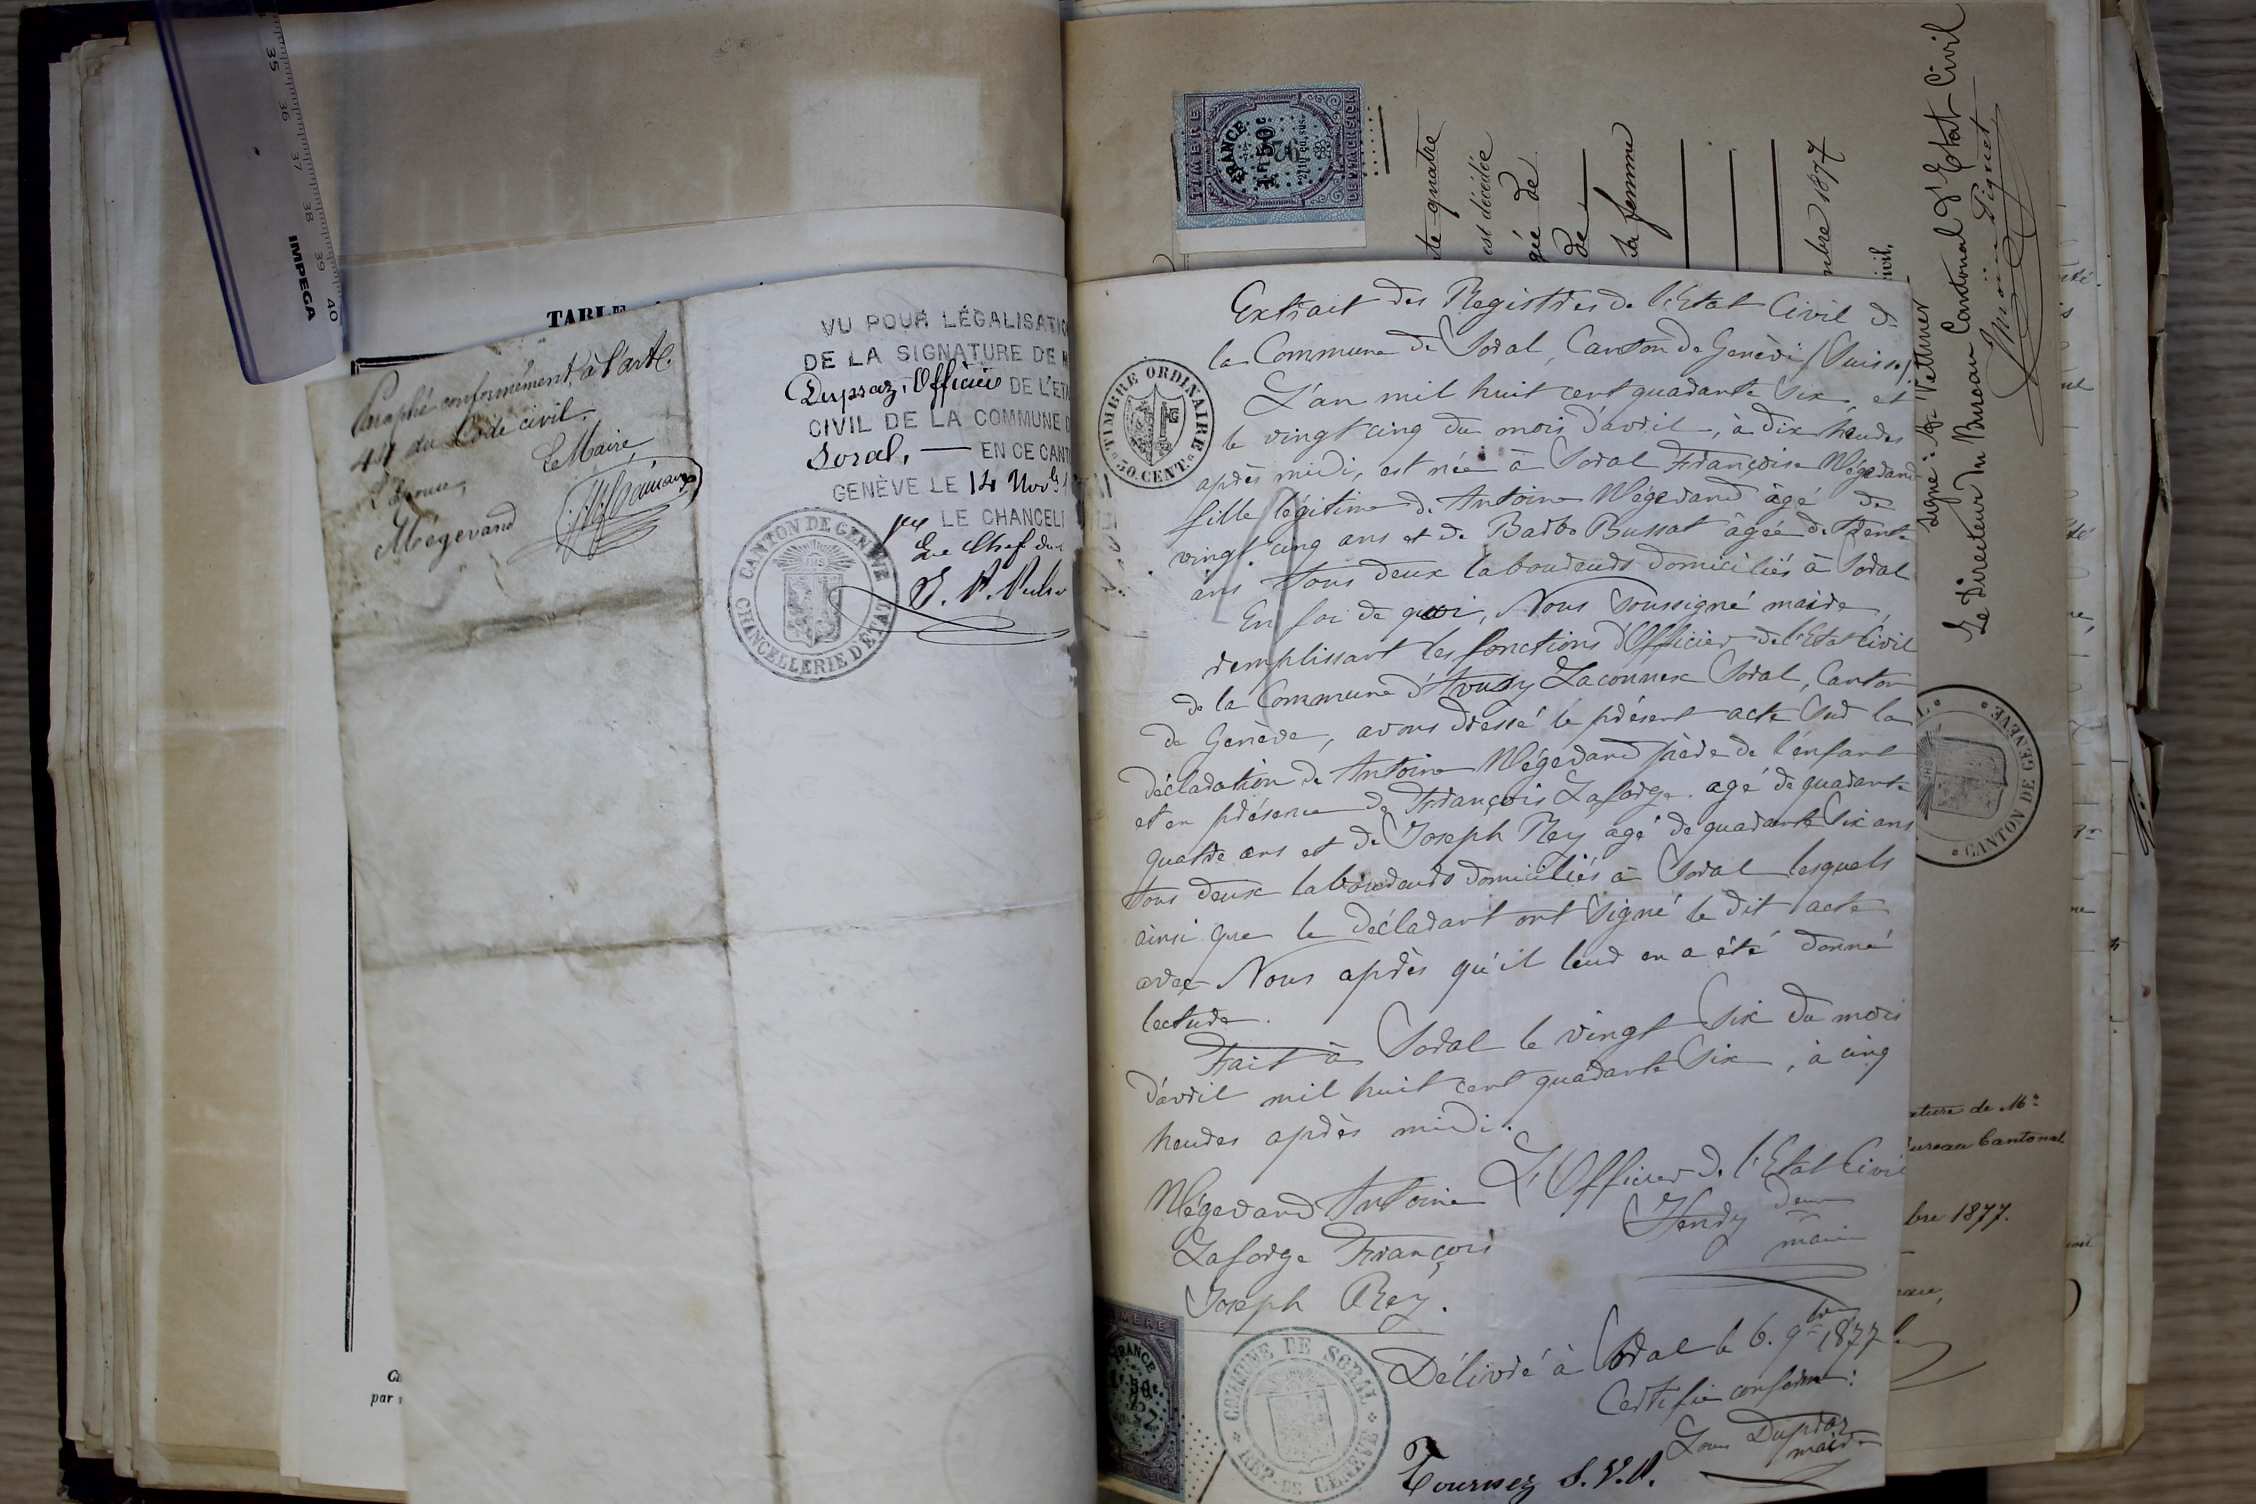 35 36 37 38 39 40
IMPEGA
TABLE
Paraphé conformément à l'artle.
44 du Code civil.
L'épouse, Le Maire,
Mégevand
VU POUR LÉGALISATIO
DE LA SIGNATURE DE M
Dupraz, Officier DE L'ETA
CIVIL DE LA COMMUNE D
Soral, — EN CE CANT
GENÈVE LE 14 Novbre
LE CHANCELI
Le Chef du
CANTON DE GENÈVE
CHANCELLERIE D'ÉTAT
par
TIMBRE
FRANCE
1 Fr 50 c
2/10 en sus
DIMENSION
te quatre
est décédée
gée de
de
la femme
mbre 1877
ivil,
signé: A. Vettiner
Le Directeur du Bureau Cantonal d'Etat Civil
CANTON DE GENEVE
Extrait des Registres de l'Etat Civil de
la Commune de Soral, Canton de Genève (Suisse)
TIMBRE ORDINAIRE
50 CENT.
L'an mil huit cent quarante Six, et
le vingt cinq du mois d'avril, à dix heures
après midi, est née à Soral Françoise Mégevand
fille légitime de Antoine Mégevand âgé de
vingt cinq ans et de Barbe Bussat âgée de Trente
ans Tous deux laboureurs domiciliés à Soral
En foi de quoi, Nous Soussigné maire,
remplissant les fonctions d'Officier de l'Etat Civil
de la Commune d'Avusy Laconnex Soral, Canton
de Genève, avons dressé le présent acte Sur la
déclaration de Antoine Mégevand père de l'enfant
et en présence de François Laforge agé de quarante
quatre ans et de Joseph Rey agé de quarante Six ans
tous deux laboureurs domiciliés à Soral lesquels
ainsi que le déclarant ont Signé le dit acte
avec Nous après qu'il leur en a été donné
lecture.
Fait à Soral le vingt Six du mois
d'avril mil huit cent quarante Six, à cinq
heures après midi.
Mégevand Antoine L'Officier de l'Etat Civil
Laforge François Hendy
maire
Joseph Rey.
ature de Mr
ureau Cantonal
bre 1877.
FRANCE
COMMUNE DE SORAL
REP. DE GENEVE
Délivré à Soral le 6. 9bre 1877
Certifié conforme:
Louis Dupraz
maire
Tournez S.V.P.